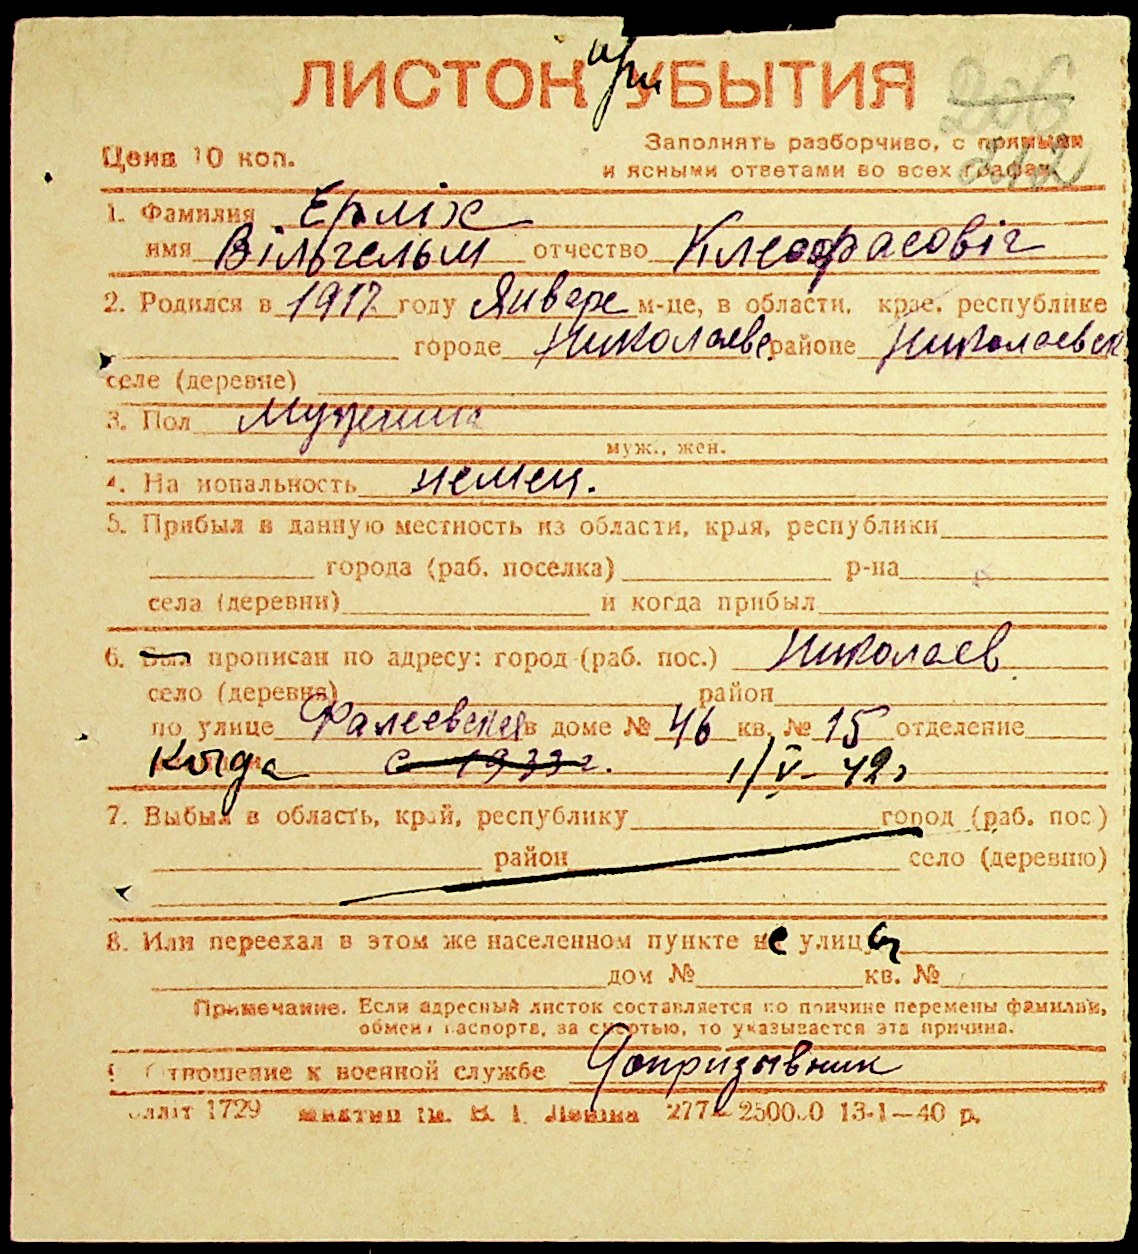 ЛИСТОК при УБЫТИЯ
206
212
Цена 10 коп.
Заполнять разборчиво, с прямыми
и ясными ответами во всех графах
1. Фамилия Ерліх
имя Вільгельм отчество Клеофасовіч
2. Родился в 1917 году Январе м-це, в области, крае, республике
городе Николаеве районе Николаевск
селе (деревне)
3. Пол Мужчина
муж., жен.
4. Национальность немец.
5. Прибыл в данную местность из области, края, республики
города (раб. поселка) р-на
села (деревни) и когда прибыл
6. Был прописан по адресу: город (раб. пос.) Николаев
село (деревня) район
по улице Фалеевская в доме № 46 кв. № 15 отделение
Когда с 1933 г. 1/V-42 г
7. Выбыл в область, край, республику город (раб. пос.)
район село (деревню)
8. Или переехал в этом же населенном пункте не улицы
дом № кв. №
Примечание. Если адресный листок составляется по причине перемены фамилии,
обмена паспорта, за смертью, то указывается эта причина.
Отношение к военной службе Допризывник
1729 ім. В. І. Леніна 277 13-1—40 р.